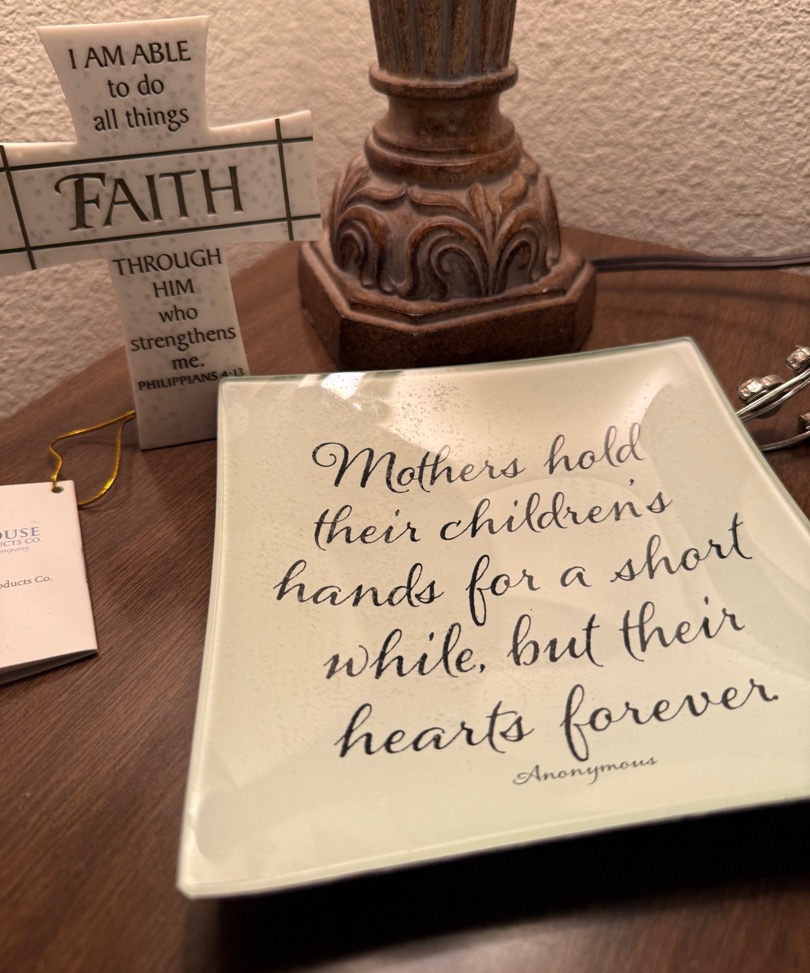 I AM ABLE
to do
all things
FAITH
THROUGH
HIM
who
strengthens
me.
PHILIPPIANS 4:13
Mothers hold
their children's
hands for a short
while, but their
hearts forever.
Anonymous
CO.
Company
Products Co.